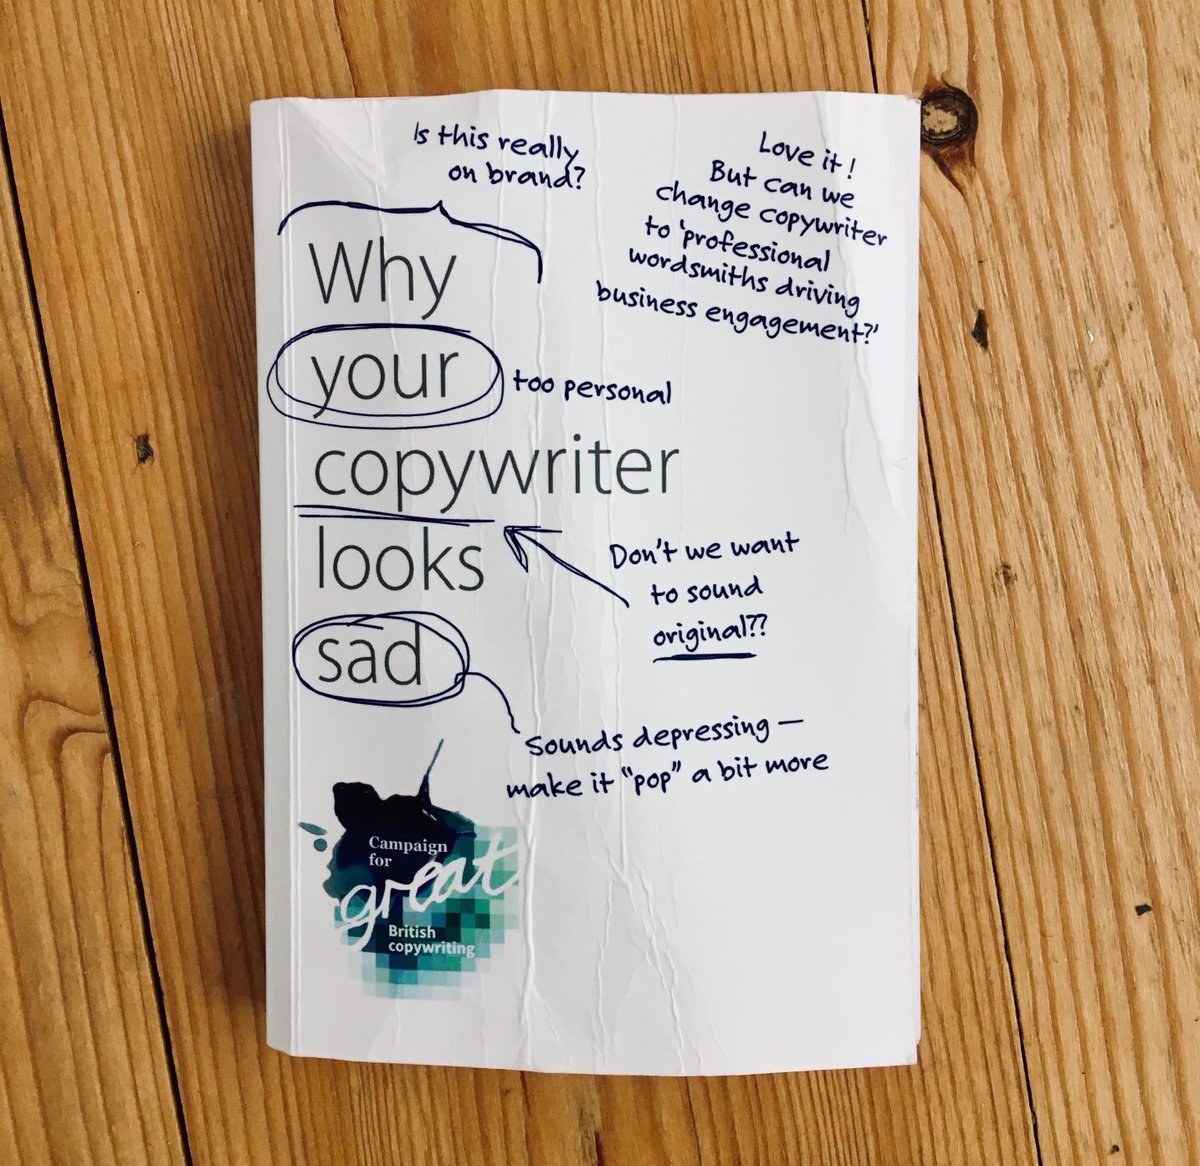 Is this really
on brand?
Love it!
But can we
change copywriter
to 'professional
wordsmiths driving
business engagement?'
Why
your
too personal
copywriter
looks
Don't we want
to sound
original??
sad
Sounds depressing —
make it "pop" a bit more
Campaign
for
great
British
copywriting